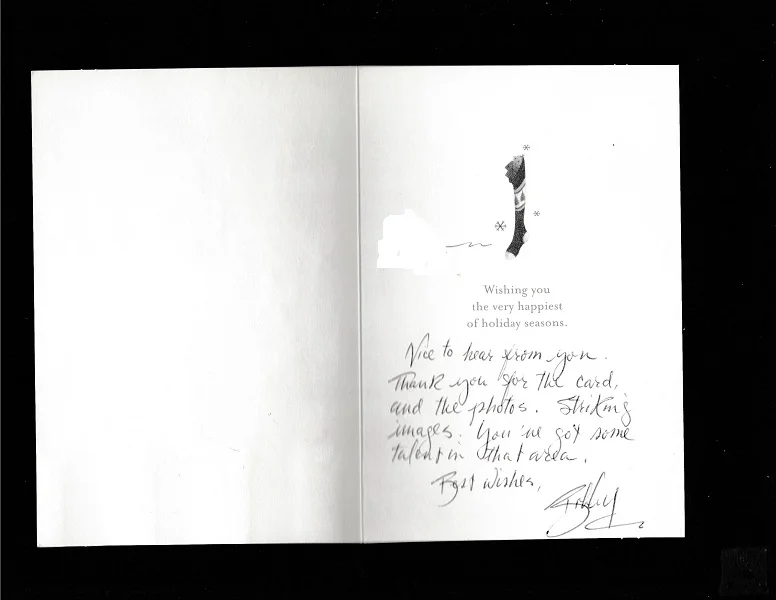 Wishing you
the very happiest
of holiday seasons.
Nice to hear from you.
Thank you for the card,
and the photos. Striking
images. You've got some
talent in that area.
Best Wishes,